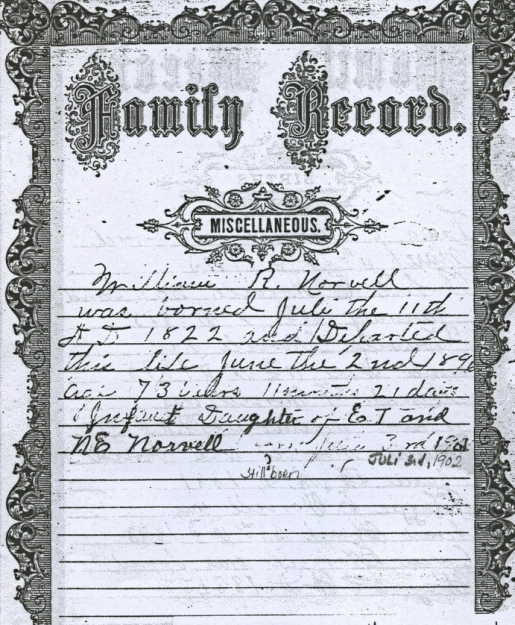 Family Record.
MISCELLANEOUS.
William R. Norvell
was borned Juli the 11th
A D 1822 and Departed
this life June the 2nd 1896
age 73 years 11 months 21 days
Infant Daughter of E T and
N E Norvell 3rd
JULI 3d, 1902
?
Still born